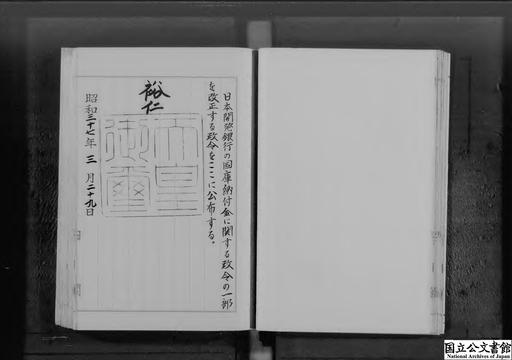 日本開発銀行の国庫納付金に関する政令の一部
を改正する政令をここに公布する。
裕仁
天皇御璽
昭和三十七年三月二十九日
国立公文書館
National Archives of Japan